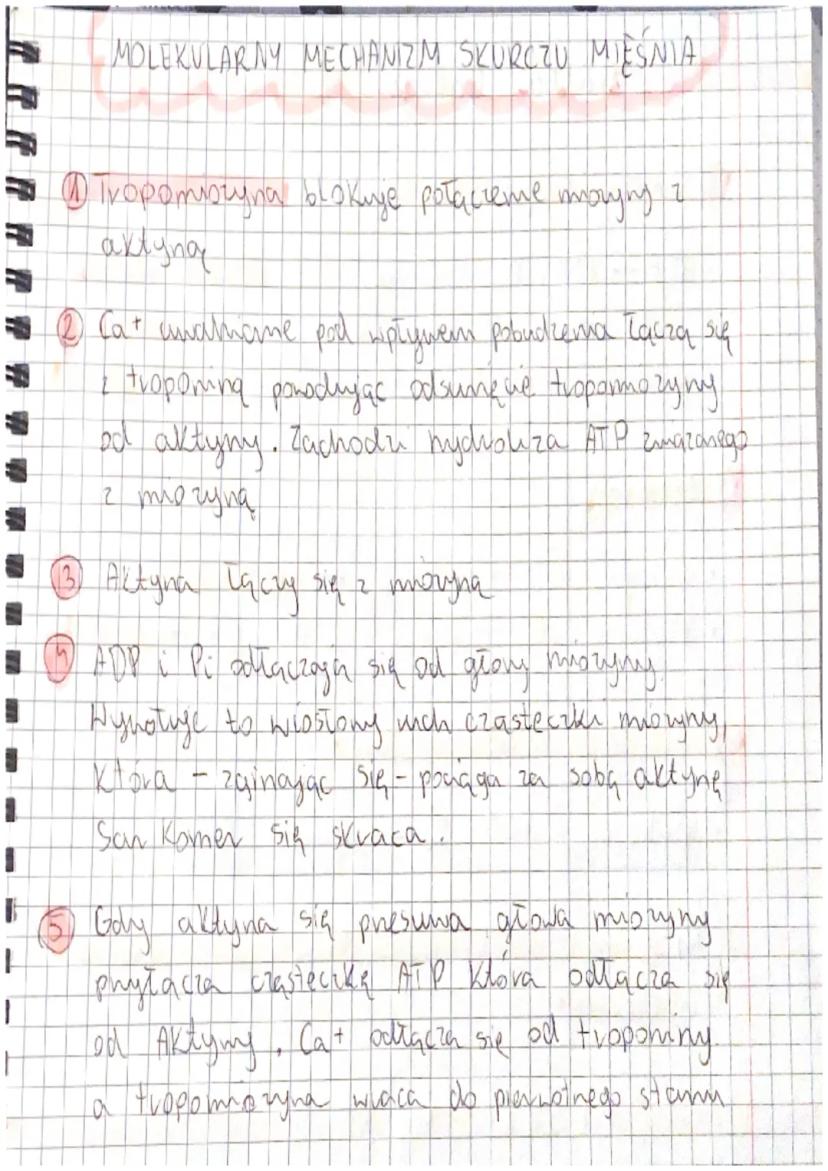 MOLEKULARNY MECHANIZM SKURCZU MIĘŚNIA
1 Tropomiozyna blokuje połączenie miozyny z
aktyną
2 Ca+ uwalniane pod wpływem pobudzenia łączą się
z troponiną powodując odsunięcie tropomiozyny
od aktyny. Zachodzi hydroliza ATP związanego
z miozyną
3 Aktyna łączy się z miozyną
4 ADP i Pi odłączają się od głowy miozyny
Wywołuje to wiosłowy ruch cząsteczki miozyny,
która - zginając się - pociąga za sobą aktynę
Sarkomer się skraca.
5 Gdy aktyna się przesuwa głowa miozyny
przyłącza cząsteczkę ATP która odłącza się
od Aktyny. Ca+ odłącza się od troponiny
a tropomiozyna wraca do pierwotnego stanu